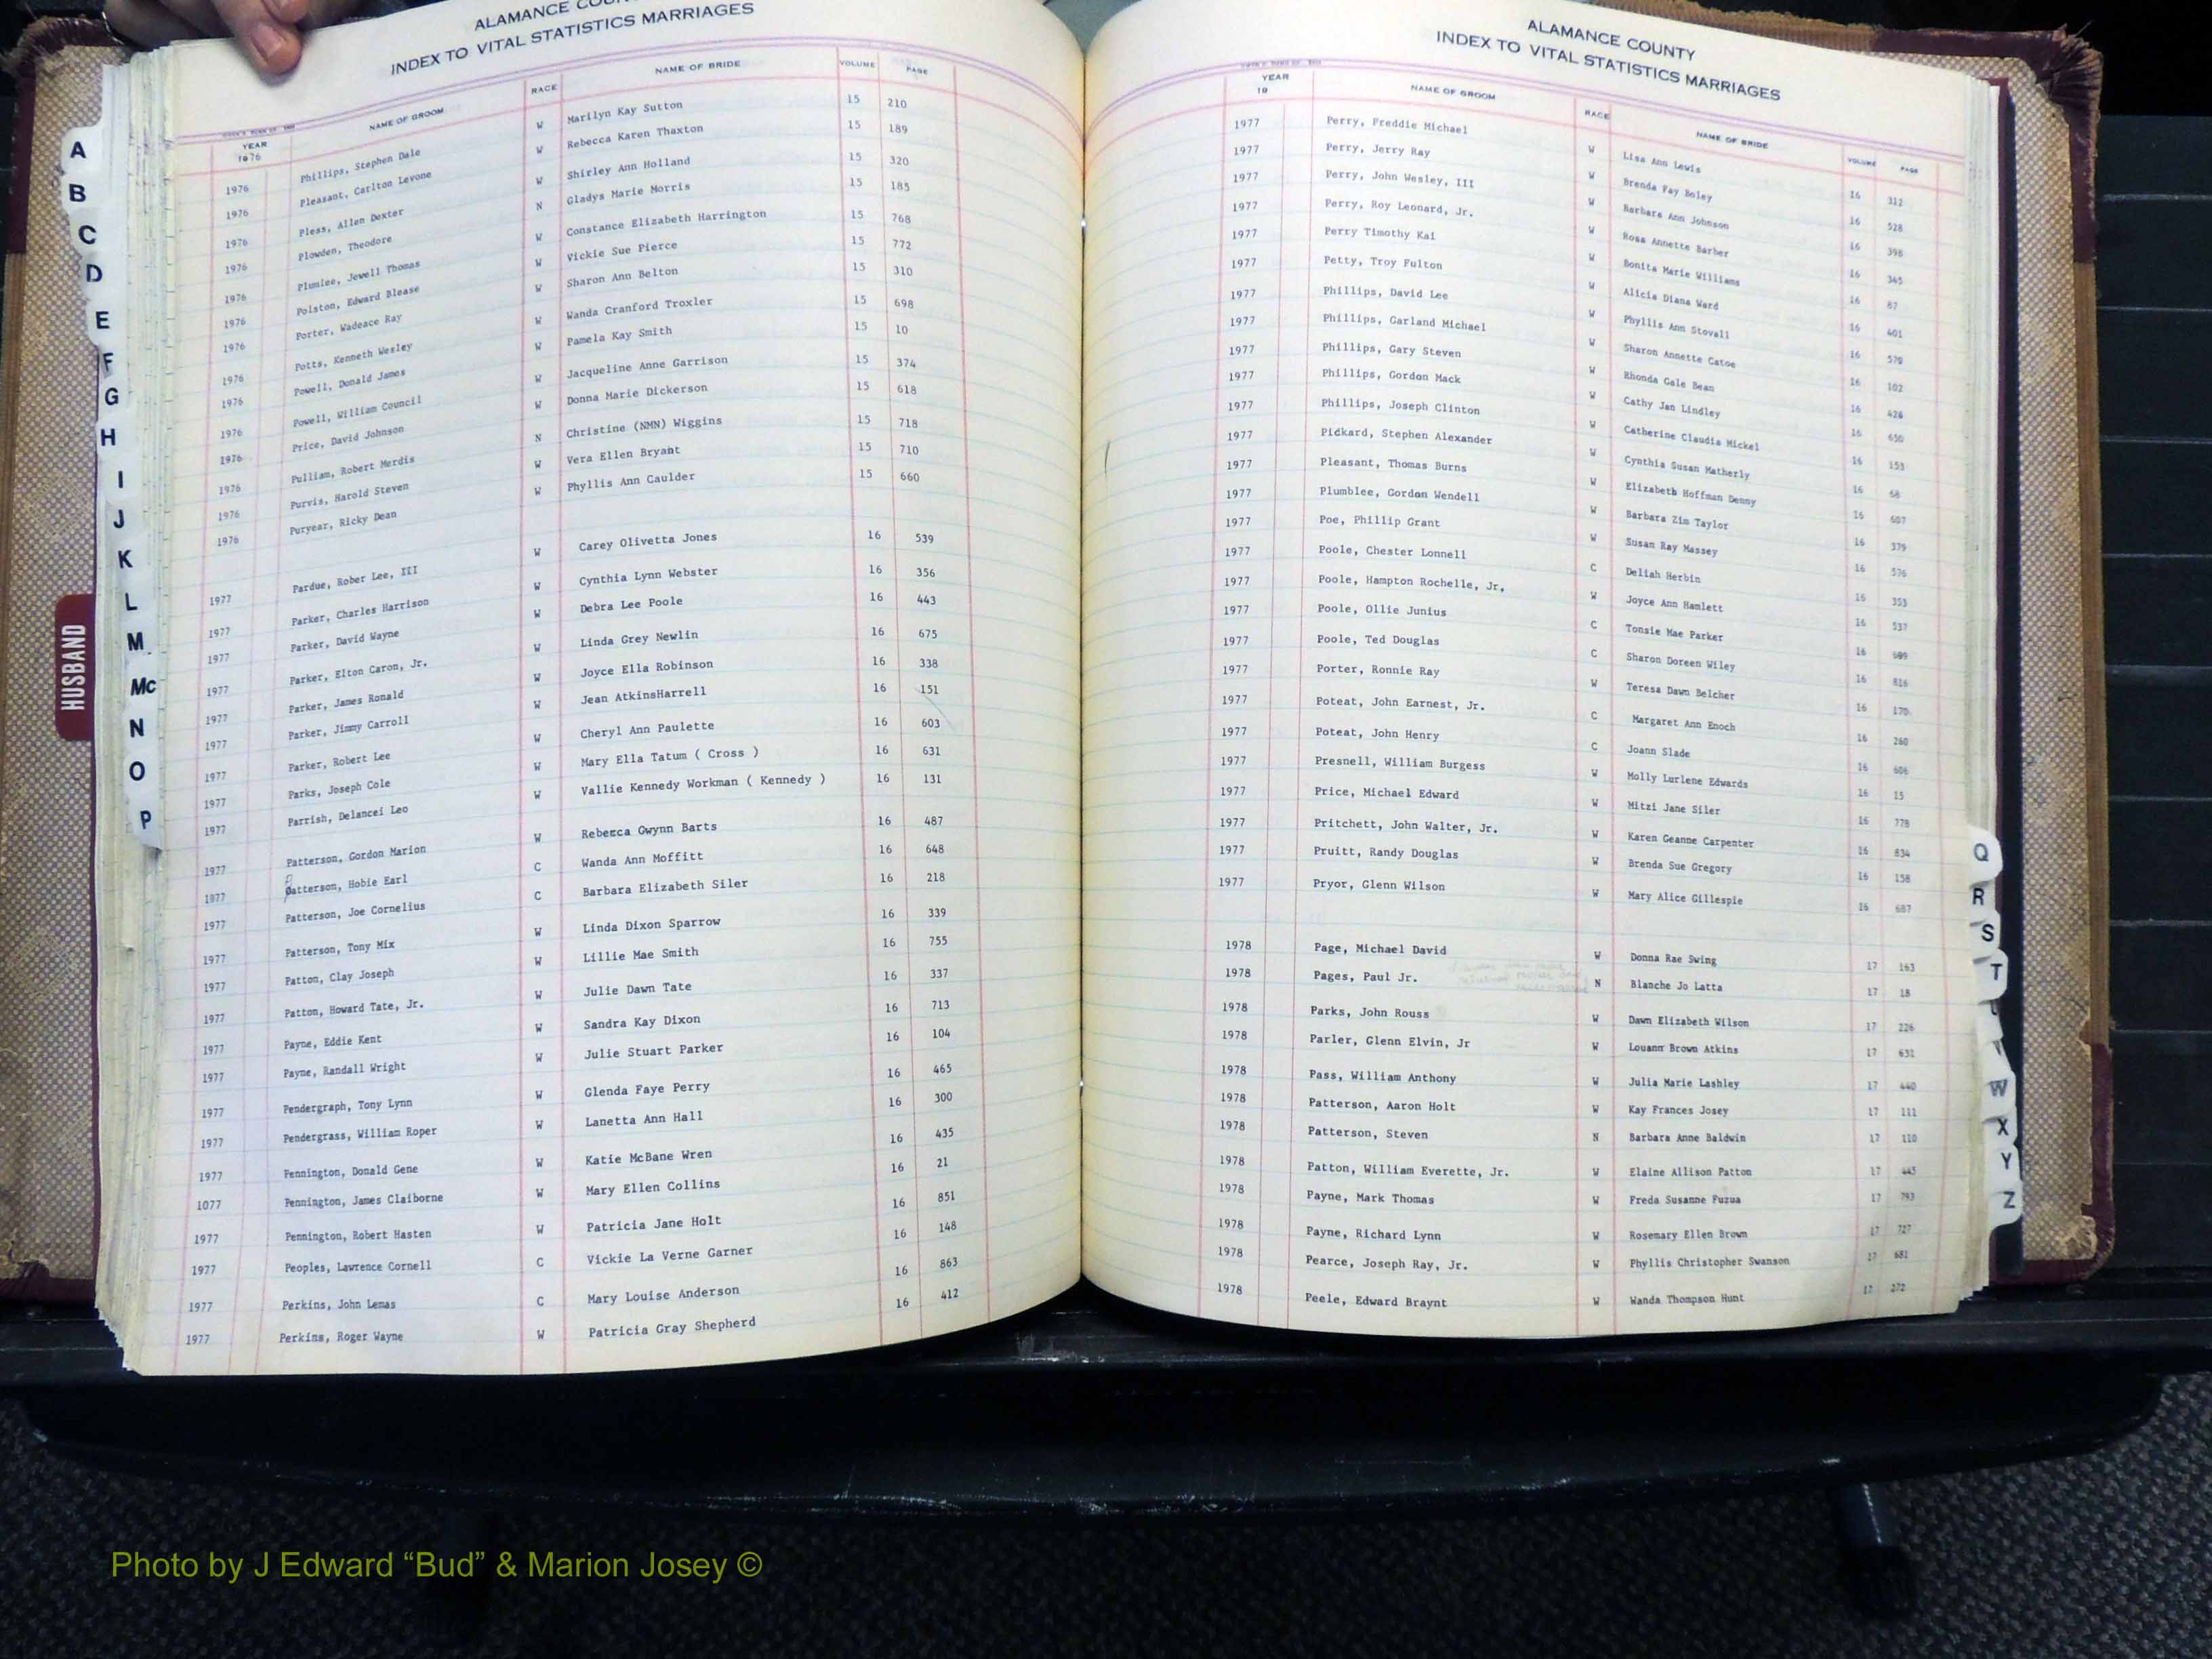 ALAMANCE
INDEX TO VITAL STATISTICS MARRIAGES
YEAR NAME OF GROOM RACE NAME OF BRIDE VOLUME PAGE
1976
1976 Phillips, Stephen Dale W Marilyn Kay Sutton 15 210
1976 Pleasant, Carlton Levone W Rebecca Karen Thaxton 15 189
1976 Pless, Allen Dexter W Shirley Ann Holland 15 320
1976 Plowden, Theodore N Gladys Marie Morris 15 185
1976 Plumlee, Jewell Thomas W Constance Elizabeth Harrington 15 768
1976 Polston, Edward Blease W Vickie Sue Pierce 15 772
1976 Porter, Wadeace Ray W Sharon Ann Belton 15 310
1976 Potts, Kenneth Wesley W Wanda Cranford Troxler 15 698
1976 Powell, Donald James W Pamela Kay Smith 15 10
1976 Powell, William Council W Jacqueline Anne Garrison 15 374
1976 Price, David Johnson W Donna Marie Dickerson 15 618
1976 Pulliam, Robert Merdis N Christine (NMN) Wiggins 15 718
1976 Purvis, Harold Steven W Vera Ellen Bryant 15 710
1976 Puryear, Ricky Dean W Phyllis Ann Caulder 15 660
1977 Pardue, Rober Lee, III W Carey Olivetta Jones 16 539
1977 Parker, Charles Harrison W Cynthia Lynn Webster 16 356
1977 Parker, David Wayne W Debra Lee Poole 16 443
1977 Parker, Elton Caron, Jr. W Linda Grey Newlin 16 675
1977 Parker, James Ronald W Joyce Ella Robinson 16 338
1977 Parker, Jimmy Carroll W Jean AtkinsHarrell 16 151
1977 Parker, Robert Lee W Cheryl Ann Paulette 16 603
1977 Parks, Joseph Cole W Mary Ella Tatum ( Cross ) 16 631
1977 Parrish, Delancei Leo W Vallie Kennedy Workman ( Kennedy ) 16 131
1977 Patterson, Gordon Marion W Rebecca Gwynn Barts 16 487
1977 Patterson, Hobie Earl C Wanda Ann Moffitt 16 648
1977 Patterson, Joe Cornelius C Barbara Elizabeth Siler 16 218
1977 Patterson, Tony Mix W Linda Dixon Sparrow 16 339
1977 Patton, Clay Joseph W Lillie Mae Smith 16 755
1977 Patton, Howard Tate, Jr. W Julie Dawn Tate 16 337
1977 Payne, Eddie Kent W Sandra Kay Dixon 16 713
1977 Payne, Randall Wright W Julie Stuart Parker 16 104
1977 Pendergraph, Tony Lynn W Glenda Faye Perry 16 465
1977 Pendergrass, William Roper W Lanetta Ann Hall 16 300
1977 Pennington, Donald Gene W Katie McBane Wren 16 435
1077 Pennington, James Claiborne W Mary Ellen Collins 16 21
1977 Pennington, Robert Hasten W Patricia Jane Holt 16 851
1977 Peoples, Lawrence Cornell C Vickie La Verne Garner 16 148
1977 Perkins, John Lemas C Mary Louise Anderson 16 863
1977 Perkins, Roger Wayne W Patricia Gray Shepherd 16 412
A
B
C
D
E
F
G
H
I
J
K
L
M
Mc
N
O
P
HUSBAND
ALAMANCE COUNTY
INDEX TO VITAL STATISTICS MARRIAGES
YEAR NAME OF GROOM RACE NAME OF BRIDE VOLUME PAGE
19
1977 Perry, Freddie Michael W Lisa Ann Lewis 16 312
1977 Perry, Jerry Ray W Brenda Fay Boley 16 528
1977 Perry, John Wesley, III W Barbara Ann Johnson 16 398
1977 Perry, Roy Leonard, Jr. W Rosa Annette Barber 16 345
1977 Perry Timothy Kai W Bonita Marie Williams 16 87
1977 Petty, Troy Fulton W Alicia Diana Ward 16 401
1977 Phillips, David Lee W Phyllis Ann Stovall 16 570
1977 Phillips, Garland Michael W Sharon Annette Catoe 16 102
1977 Phillips, Gary Steven W Rhonda Gale Bean 16 428
1977 Phillips, Gordon Mack W Cathy Jan Lindley 16 650
1977 Phillips, Joseph Clinton W Catherine Claudia Mickel 16 153
1977 Pickard, Stephen Alexander W Cynthia Susan Matherly 16 68
1977 Pleasant, Thomas Burns W Elizabeth Hoffman Denny 16 607
1977 Plumblee, Gordon Wendell W Barbara Zim Taylor 16 379
1977 Poe, Phillip Grant W Susan Ray Massey 16 576
1977 Poole, Chester Lonnell C Deliah Herbin 16 353
1977 Poole, Hampton Rochelle, Jr. W Joyce Ann Hamlett 16 537
1977 Poole, Ollie Junius C Tonsie Mae Parker 16
1977 Poole, Ted Douglas C Sharon Doreen Wiley 16 816
1977 Porter, Ronnie Ray W Teresa Dawn Belcher 16 170
1977 Poteat, John Earnest, Jr. C Margaret Ann Enoch 16 260
1977 Poteat, John Henry C Joann Slade 16 606
1977 Presnell, William Burgess W Molly Lurlene Edwards 16 15
1977 Price, Michael Edward W Mitzi Jane Siler 16 778
1977 Pritchett, John Walter, Jr. W Karen Geanne Carpenter 16 834
1977 Pruitt, Randy Douglas W Brenda Sue Gregory 16 158
1977 Pryor, Glenn Wilson W Mary Alice Gillespie 16 687
1978 Page, Michael David W Donna Rae Swing 17 163
1978 Pages, Paul Jr. N Blanche Jo Latta 17 18
1978 Parks, John Rouss W Dawn Elizabeth Wilson 17 226
1978 Parler, Glenn Elvin, Jr W Louann Brown Atkins 17 631
1978 Pass, William Anthony W Julia Marie Lashley 17 440
1978 Patterson, Aaron Holt W Kay Frances Josey 17 111
1978 Patterson, Steven N Barbara Anne Baldwin 17 110
1978 Patton, William Everette, Jr. W Elaine Allison Patton 17 445
1978 Payne, Mark Thomas W Freda Susanne Fuzua 17 793
1978 Payne, Richard Lynn W Rosemary Ellen Brown 17 727
1978 Pearce, Joseph Ray, Jr. W Phyllis Christopher Swanson 17 681
1978 Peele, Edward Braynt W Wanda Thompson Hunt 17 272
Q
R
S
T
W
X
Y
Z
Photo by J Edward “Bud” & Marion Josey ©